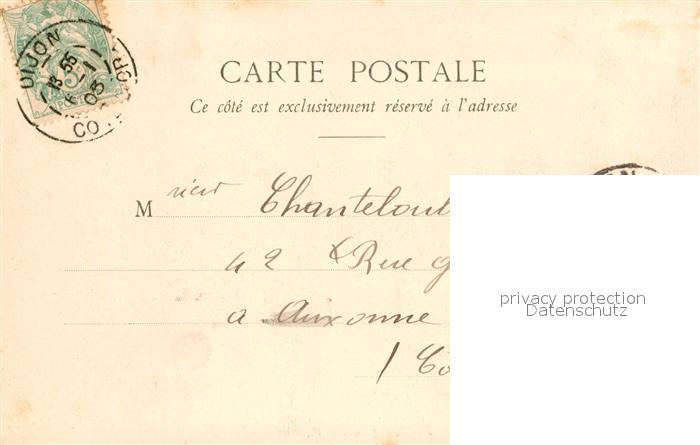 DIJON
CARTE POSTALE
Ce côté est exclusivement réservé à l'adresse
M
Chanteloul
42 Rue g
a Auxonne
privacy protection
Datenschutz